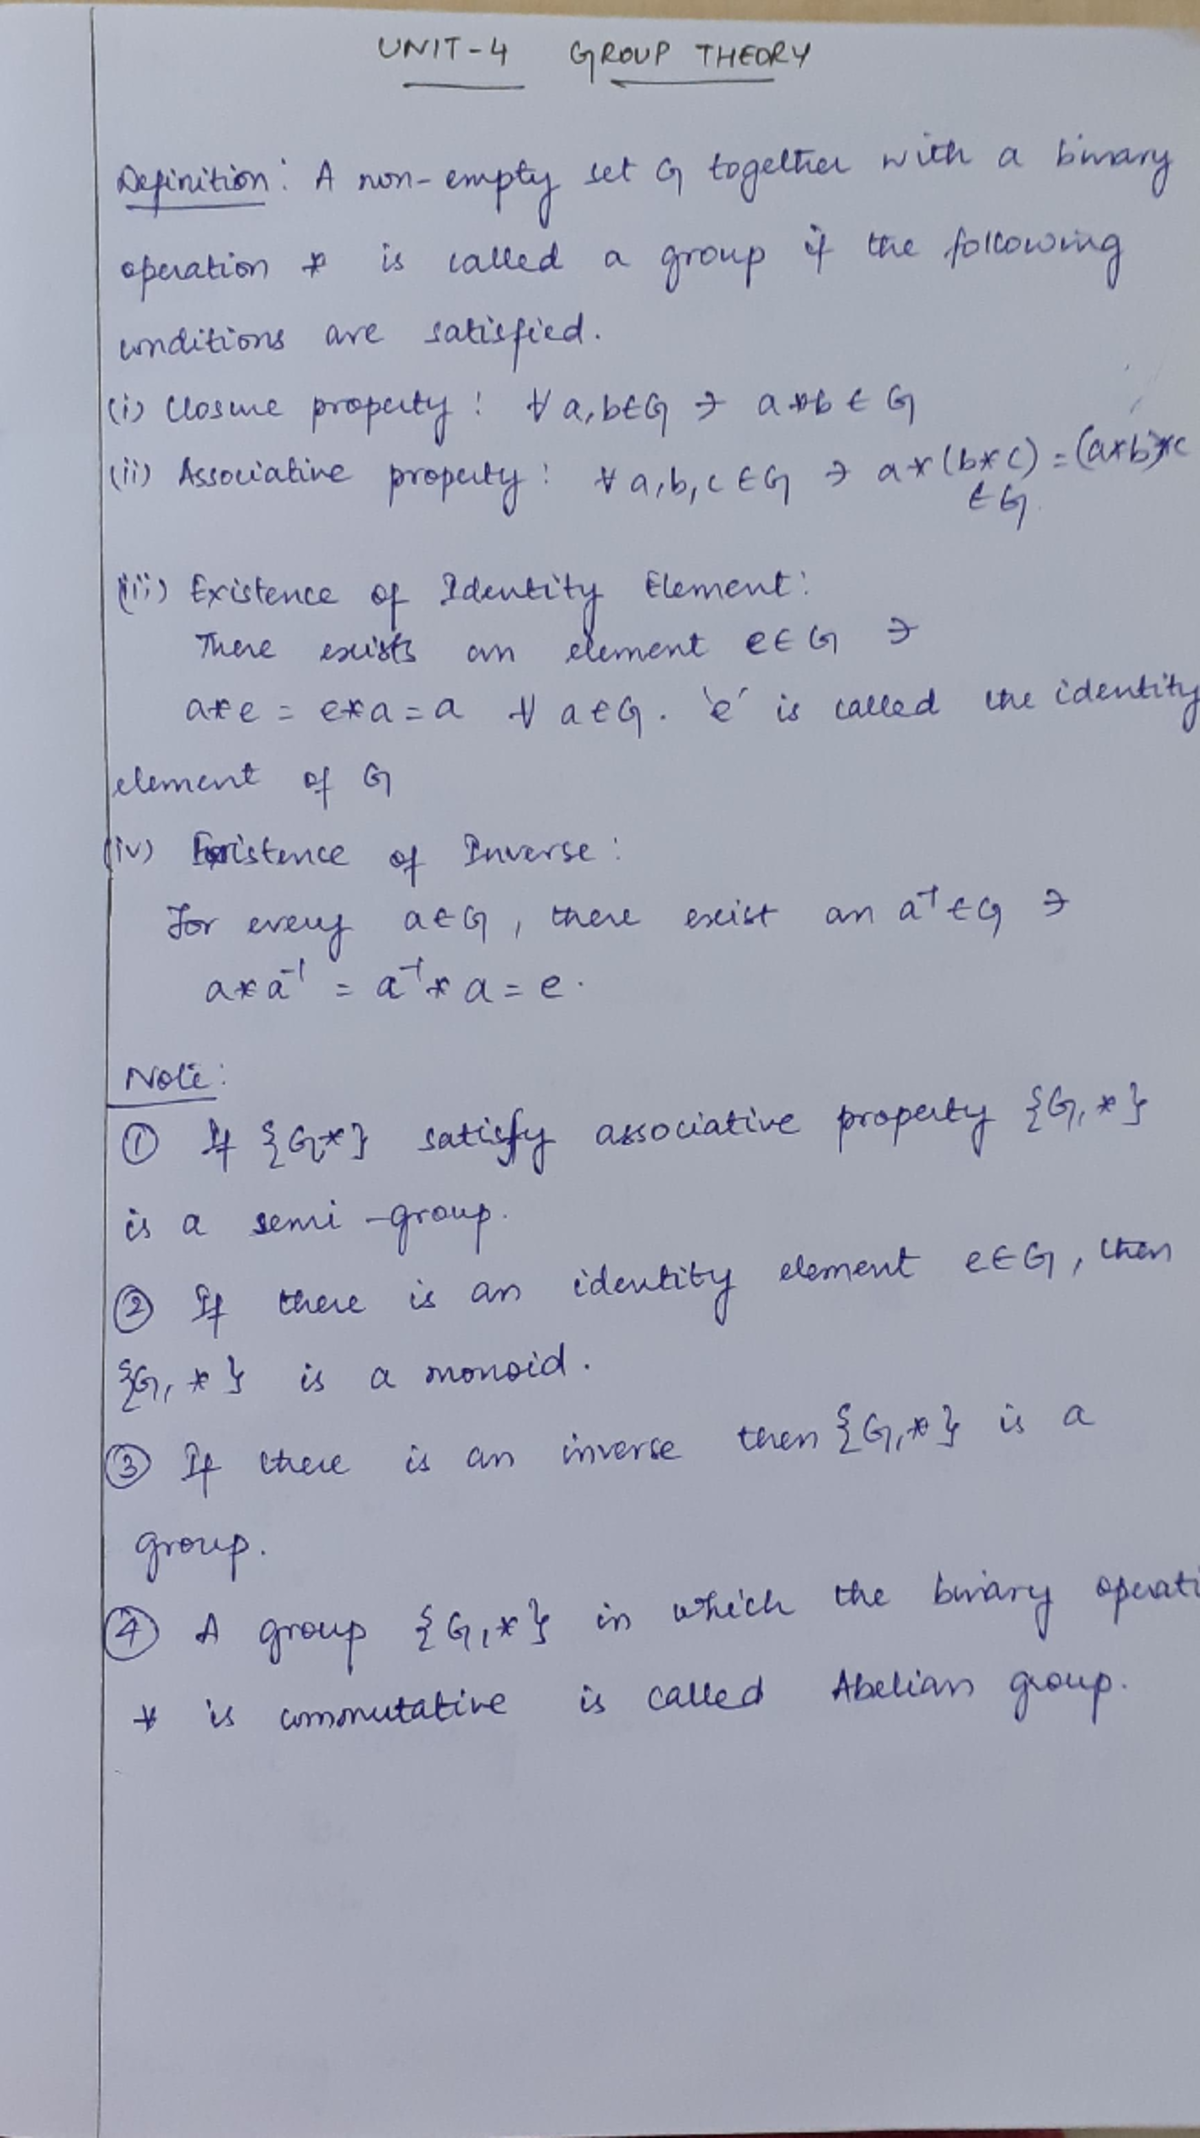 UNIT-4 GROUP THEORY
Definition: A non-empty set G together with a binary
operation * is called a group if the following
conditions are satisfied.
(i) Closure property: ∀ a,b∈G ∋ a*b ∈ G
(ii) Associative property: ∀ a,b,c ∈G ∋ a*(b*c) = (a*b)*c
∈G.
(iii) Existence of Identity Element:
There exists an element e∈G ∋
a*e = e*a = a ∀ a∈G. 'e' is called the identity
element of G
(iv) Existence of Inverse:
For every a∈G, there exist an a⁻¹∈G ∋
a*a⁻¹ = a⁻¹*a = e.
Note:
① If {G,*} satisfy associative property {G,*}
is a semi-group.
② If there is an identity element e∈G, then
{G,*} is a monoid.
③ If there is an inverse then {G,*} is a
group.
④ A group {G,*} in which the binary operati
* is commutative is called Abelian group.